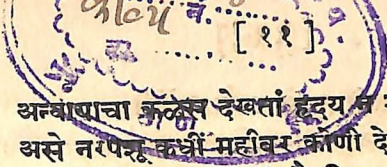 काव्य नं.
[ ११ ]
अन्यायाचा कळस देखतां हृदय न
असे नरपशू कधीं महीवर कोणी दे